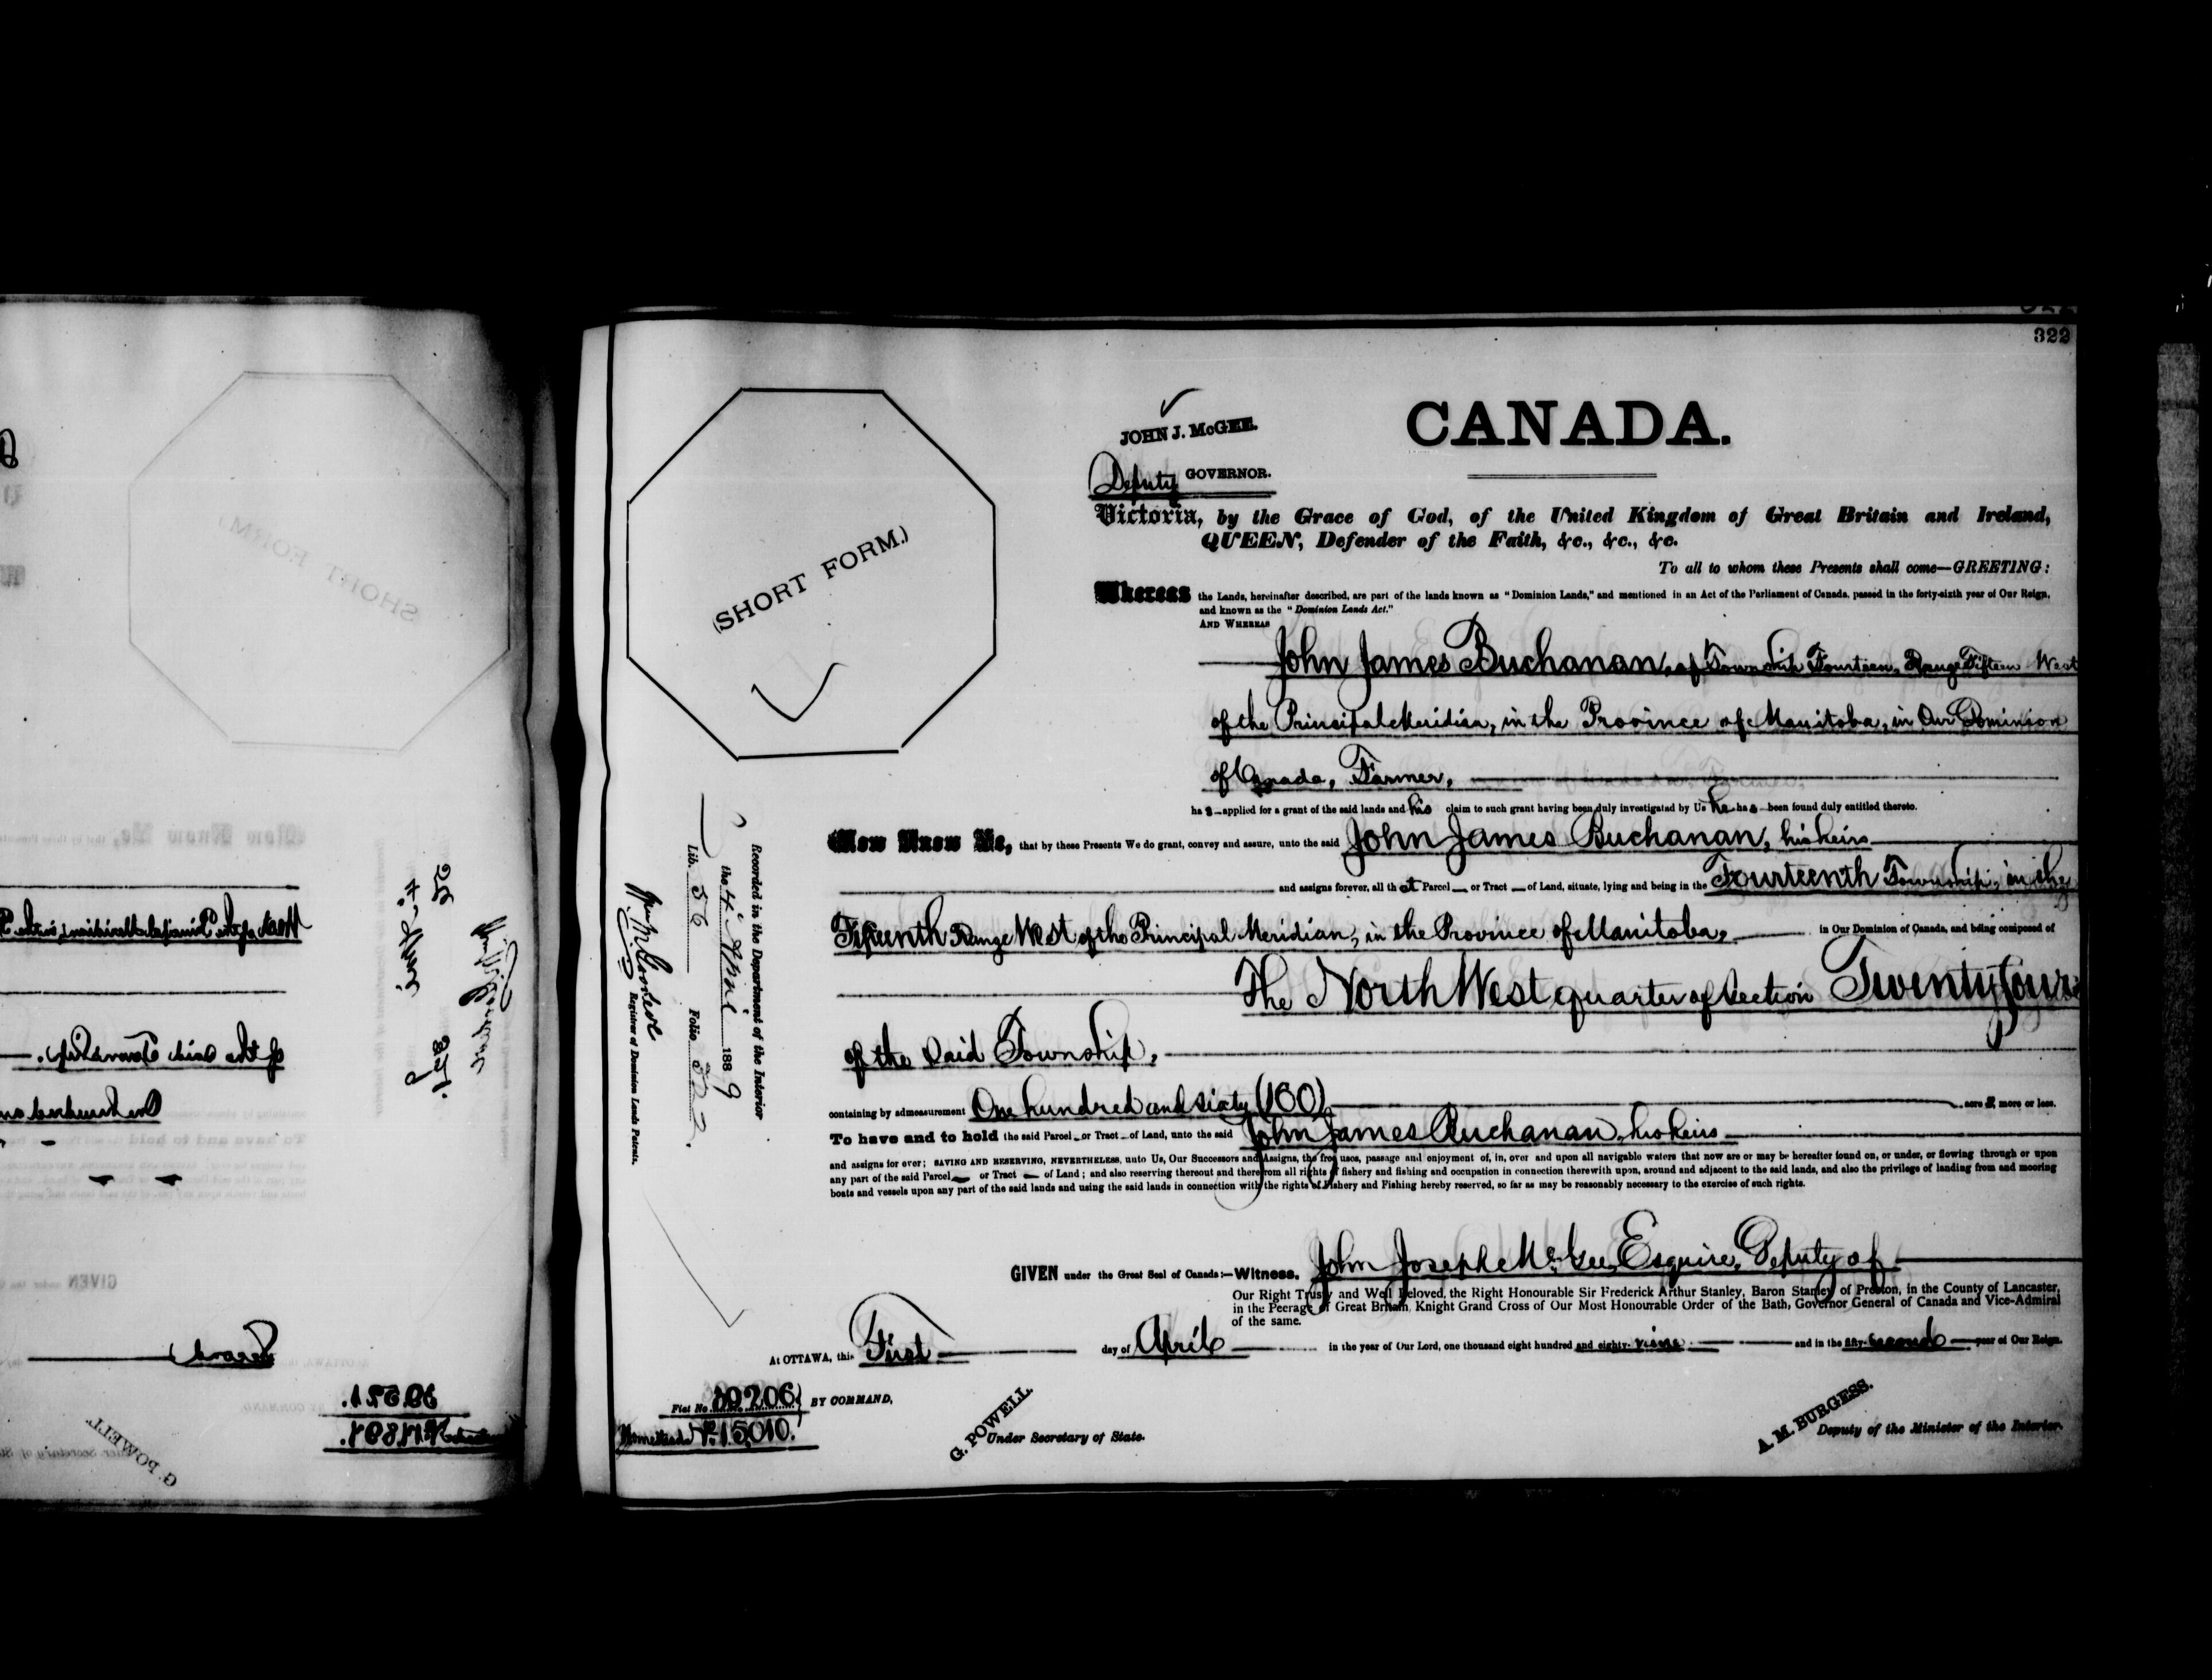 322
CANADA.
JOHN J. McGEE.
Deputy GOVERNOR.
Victoria, by the Grace of God, of the United Kingdom of Great Britain and Ireland,
QUEEN, Defender of the Faith, &c., &c., &c.
To all to whom these Presents shall come—GREETING:
Whereas the Lands, hereinafter described, are part of the lands known as "Dominion Lands," and mentioned in an Act of the Parliament of Canada, passed in the forty-sixth year of Our Reign,
and known as the "Dominion Lands Act."
AND WHEREAS
John James Buchanan, of Township Fourteen, Range Fifteen West
of the Principal Meridian, in the Province of Manitoba, in Our Dominion
of Canada, Farmer,
has applied for a grant of the said lands and his claim to such grant having been duly investigated by Us he has been found duly entitled thereto.
Now Know Ye, that by these Presents We do grant, convey and assure, unto the said John James Buchanan, his heirs
and assigns forever, all that Parcel or Tract of Land, situate, lying and being in the Fourteenth Township, in the
Fifteenth Range West of the Principal Meridian, in the Province of Manitoba, in Our Dominion of Canada, and being composed of
The North West quarter of Section Twenty four
of the said Township,
containing by admeasurement One hundred and sixty (160) acres, more or less.
To have and to hold the said Parcel or Tract of Land, unto the said John James Buchanan, his heirs
and assigns for ever; SAVING AND RESERVING, NEVERTHELESS, unto Us, Our Successors and Assigns, the free uses, passage and enjoyment of, in, over and upon all navigable waters that now are or may be hereafter found on, or under, or flowing through or upon
any part of the said Parcel or Tract of Land; and also reserving thereout and therefrom all rights of fishery and fishing and occupation in connection therewith upon, around and adjacent to the said lands, and also the privilege of landing from and mooring
boats and vessels upon any part of the said lands and using the said lands in connection with the rights of Fishery and Fishing hereby reserved, so far as may be reasonably necessary to the exercise of such rights.
GIVEN under the Great Seal of Canada:—Witness, John Joseph McGee, Esquire, Deputy of
Our Right Trusty and Well Beloved, the Right Honourable Sir Frederick Arthur Stanley, Baron Stanley of Preston, in the County of Lancaster,
in the Peerage of Great Britain, Knight Grand Cross of Our Most Honourable Order of the Bath, Governor General of Canada and Vice-Admiral
of the same.
At OTTAWA, this First day of April in the year of Our Lord, one thousand eight hundred and eighty-nine and in the fifty-second year of Our Reign.
BY COMMAND,
G. POWELL.
Under Secretary of State.
A. M. BURGESS.
Deputy of the Minister of the Interior.
(SHORT FORM.)
Recorded in the Department of the Interior
the 4th April 1889
Lib. 56 Folio 322.
Registrar of Dominion Lands Patents.
Fiat No.
Homestead No. 15010.
(SHORT FORM)
G. POWELL